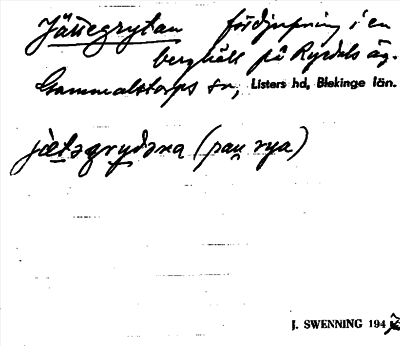 Jättegrytan fördjupning i en
berghäll på Ryedals äg.
Gammalstorps sn, Listers hd, Blekinge län.
jætəgrydəna (paɳ rya)
J. SWENNING 194